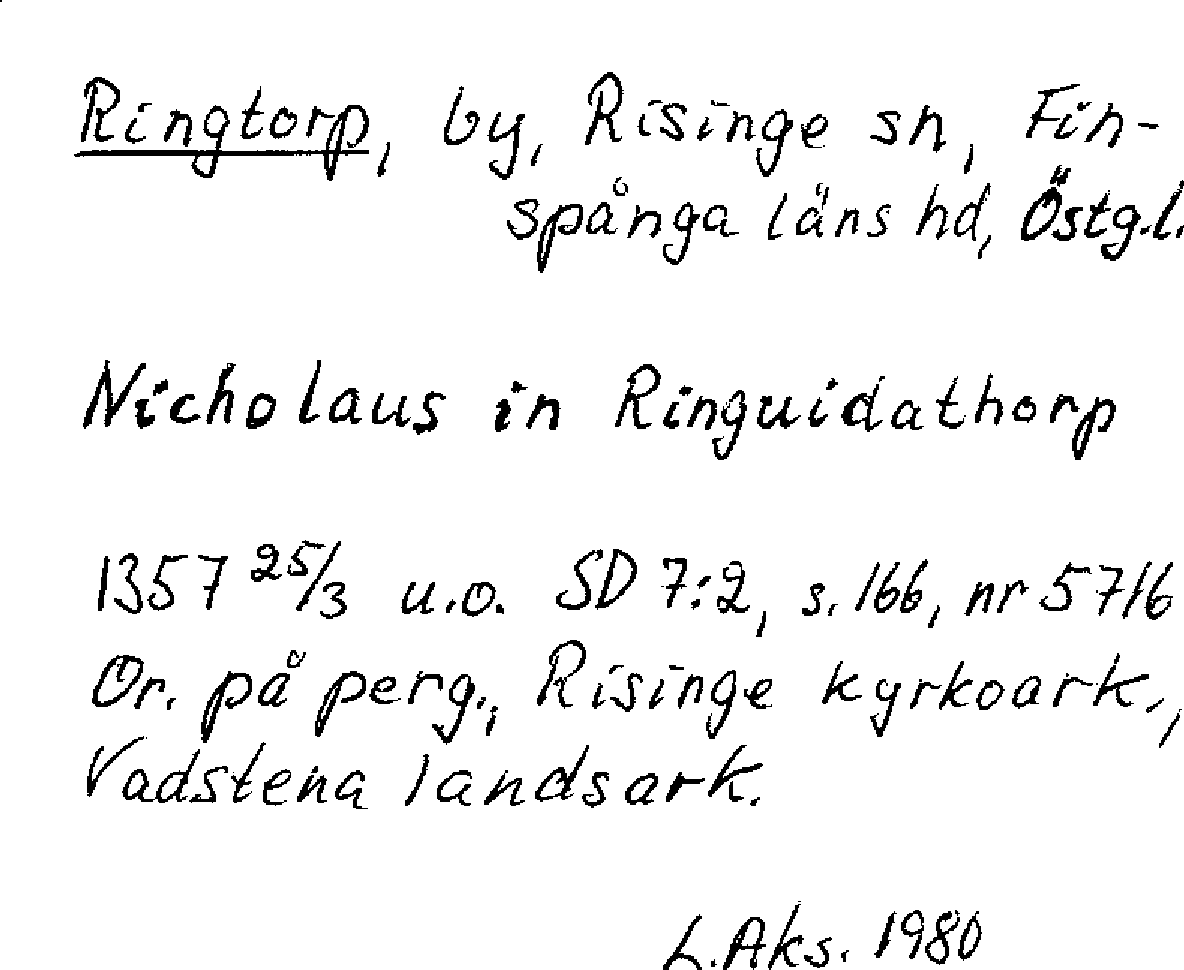 Ringtorp, by, Risinge sn, Fin-
spånga läns hd, Östg.l.
Nicholaus in Ringuidathorp
1357 25/3 u.o. SD 7:2, s. 166, nr 5716
Or. på perg., Risinge kyrkoark.,
Vadstena landsark.
L. Aks. 1980